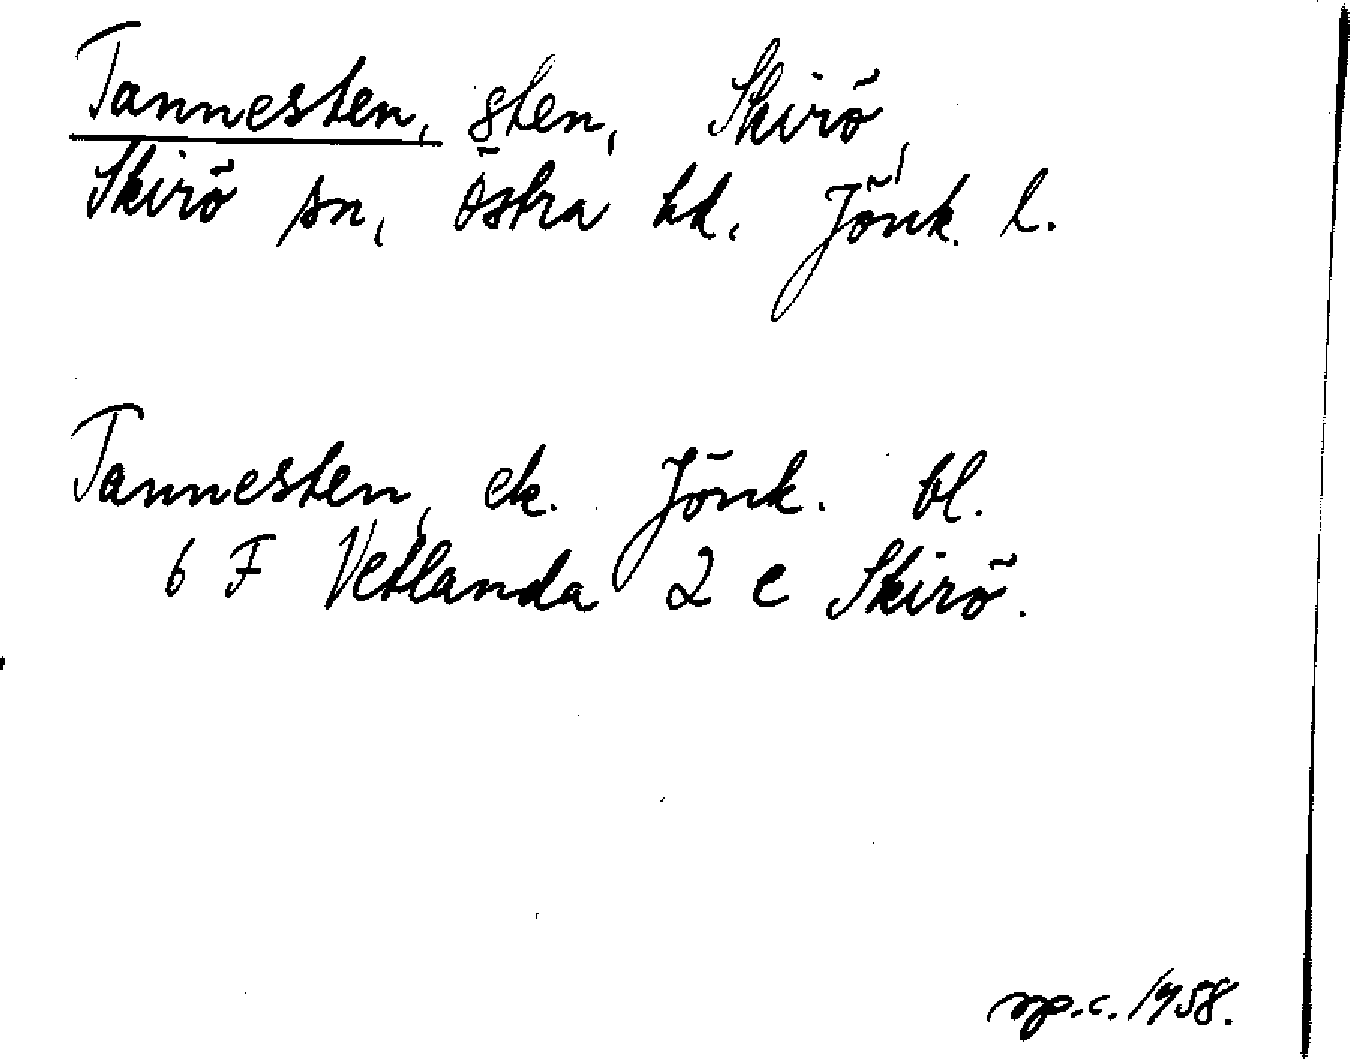 Tannesten, sten, Skirö,
Skirö sn, Östra hd. Jönk. l.
Tannesten, ek. Jönk. bl.
6 F Vetlanda 2 e Skirö.
c. 1958.